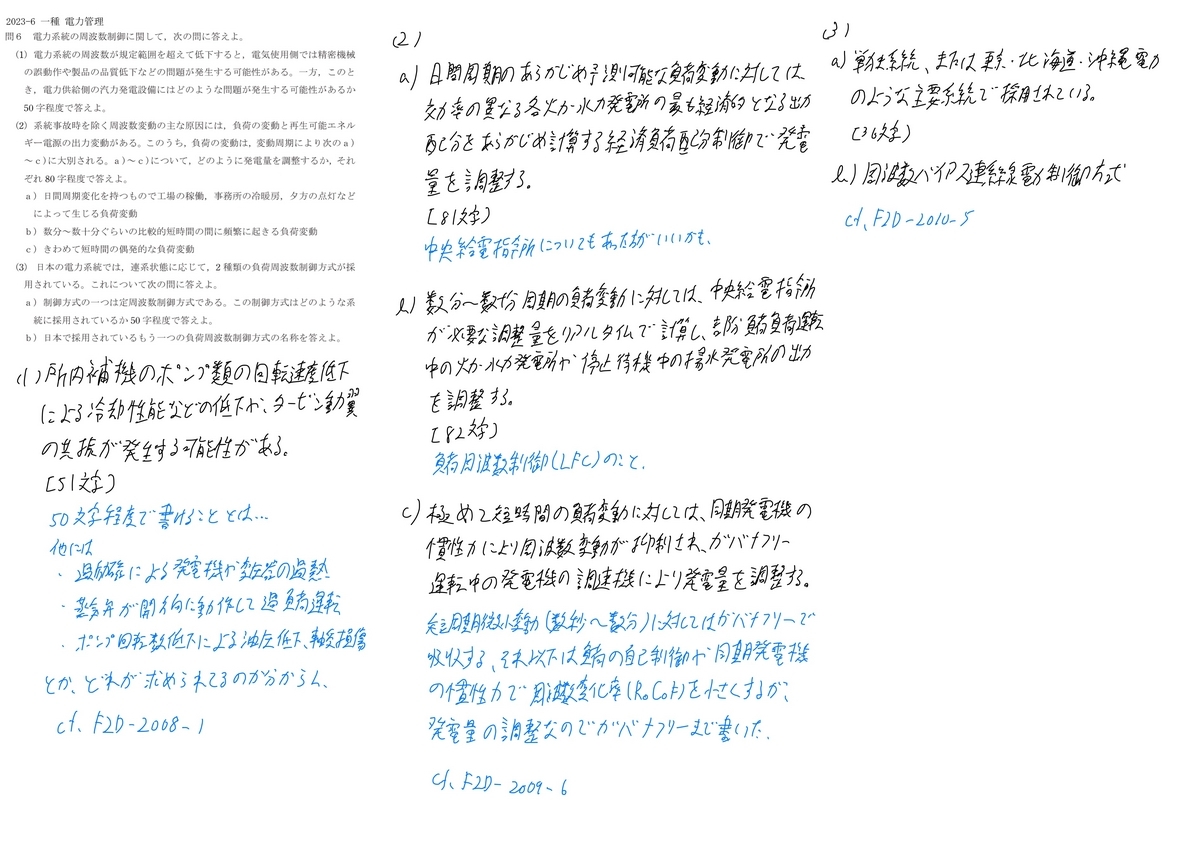 2023-6 一種 電力管理
問6 電力系統の周波数制御に関して，次の問に答えよ。
(1) 電力系統の周波数が規定範囲を超えて低下すると，電気使用側では精密機械
の誤動作や製品の品質低下などの問題が発生する可能性がある。一方，このと
き，電力供給側の汽力発電設備にはどのような問題が発生する可能性があるか
50字程度で答えよ。
(2) 系統事故時を除く周波数変動の主な原因には，負荷の変動と再生可能エネル
ギー電源の出力変動がある。このうち，負荷の変動は，変動周期により次のa)
～c)に大別される。a)～c)について，どのように発電量を調整するか，それ
ぞれ80字程度で答えよ。
a) 日間周期変化を持つもので工場の稼働，事務所の冷暖房，夕方の点灯など
によって生じる負荷変動
b) 数分～数十分ぐらいの比較的短時間の間に頻繁に起きる負荷変動
c) きわめて短時間の偶発的な負荷変動
(3) 日本の電力系統では，連系状態に応じて，2種類の負荷周波数制御方式が採
用されている。これについて次の問に答えよ。
a) 制御方式の一つは定周波数制御方式である。この制御方式はどのような系
統に採用されているか50字程度で答えよ。
b) 日本で採用されているもう一つの負荷周波数制御方式の名称を答えよ。
(1) 所内補機のポンプ類の回転速度低下
による冷却性能などの低下や、タービン動翼
の共振が発生する可能性がある。
[51文字]
50文字程度で書けることとは…
他には
・過励磁による発電機や変圧器の過熱
・蒸気弁が開方向に動作して過負荷運転
・ポンプ回転数低下による油圧低下、軸受損傷
とか、どれが求められてるのか分からん、
cf、F2D-2008-1
(2)
a) 日間周期のあらかじめ予測可能な負荷変動に対しては
効率の異なる各火力・水力発電所の最も経済的となる出力
配分をあらかじめ計算する経済負荷配分制御で発電
量を調整する。
[81文字]
中央給電指令所についてもあった方がいいかも、
b) 数分～数十分周期の負荷変動に対しては、中央給電指令所
が必要な調整量をリアルタイムで計算し、部分負荷運転
中の火力・水力発電所や停止待機中の揚水発電所の出力
を調整する。
[82文字]
負荷周波数制御(LFC)のこと、
c) 極めて短時間の負荷変動に対しては、同期発電機の
慣性力により周波数変動が抑制され、ガバナフリー
運転中の発電機の調速機により発電量を調整する。
短周期微小変動(数秒～数分)に対してはガバナフリーで
吸収する、それ以下は負荷の自己制御や同期発電機
の慣性力で周波数変化率(RoCoF)を小さくするが、
発電量の調整なのでガバナフリーまで書いた、
cf、F2D-2009-6
(3)
a) 単独系統、または東京・北海道・沖縄電力
のような主要系統で採用されている。
[36文字]
b) 周波数バイアス連系線電力制御方式
cf、F2D-2010-5